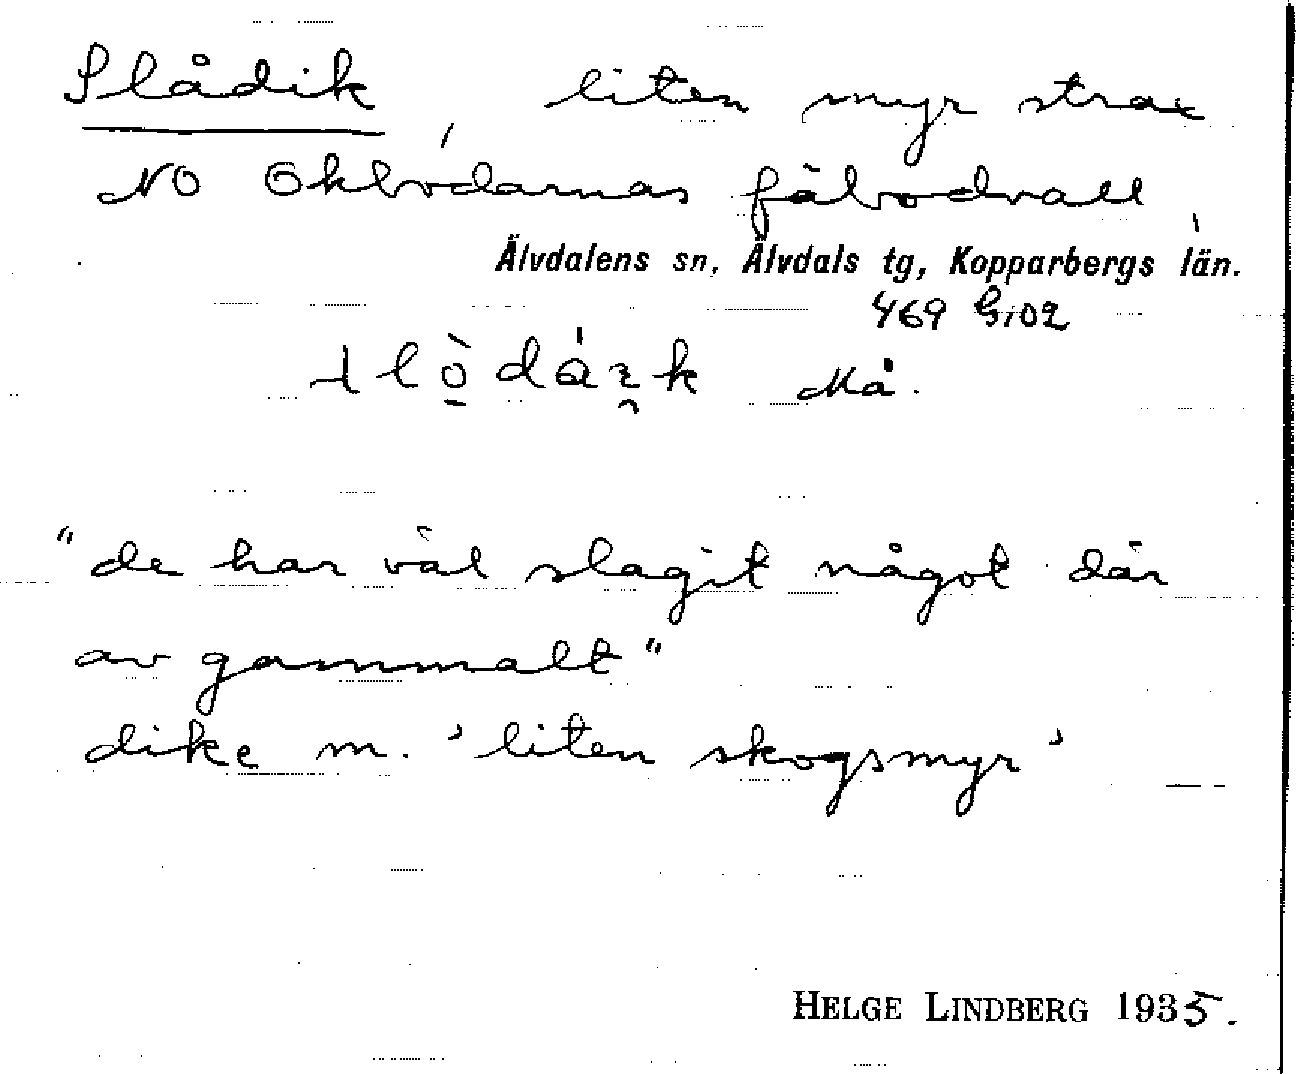 Slådik, liten myr strax
NO Okbodarnas fäbodvall,
Älvdalens sn, Älvdals tg, Kopparbergs län.
469 Gi02
Må.
"de har väl slagit något där
av gammalt"
dike m. 'liten skogsmyr'
HELGE LINDBERG 1935.